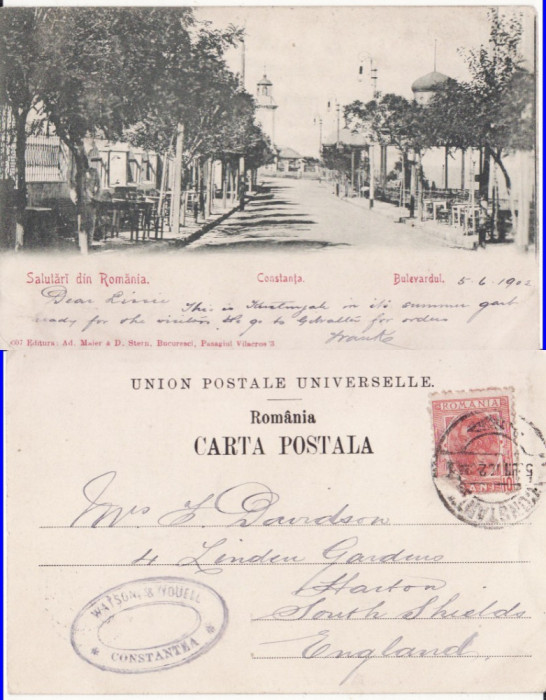 Salutări din România. Constanța. Bulevardul. 5-6-1902
Dear Lizzie This is Kustenjah in its summer garb
ready for the visitors. We go to Gibralter for orders
Frank
Editura: Ad. Maier & D. Stern, Bucuresci, Pasagiul Vilacros 3
UNION POSTALE UNIVERSELLE.
România
CARTA POSTALA
ROMANIA
BANI
Mrs F. Davidson
4 Linden Gardens
Harton
South Shields
England
WATSON & YOUELL
* CONSTANTZA *